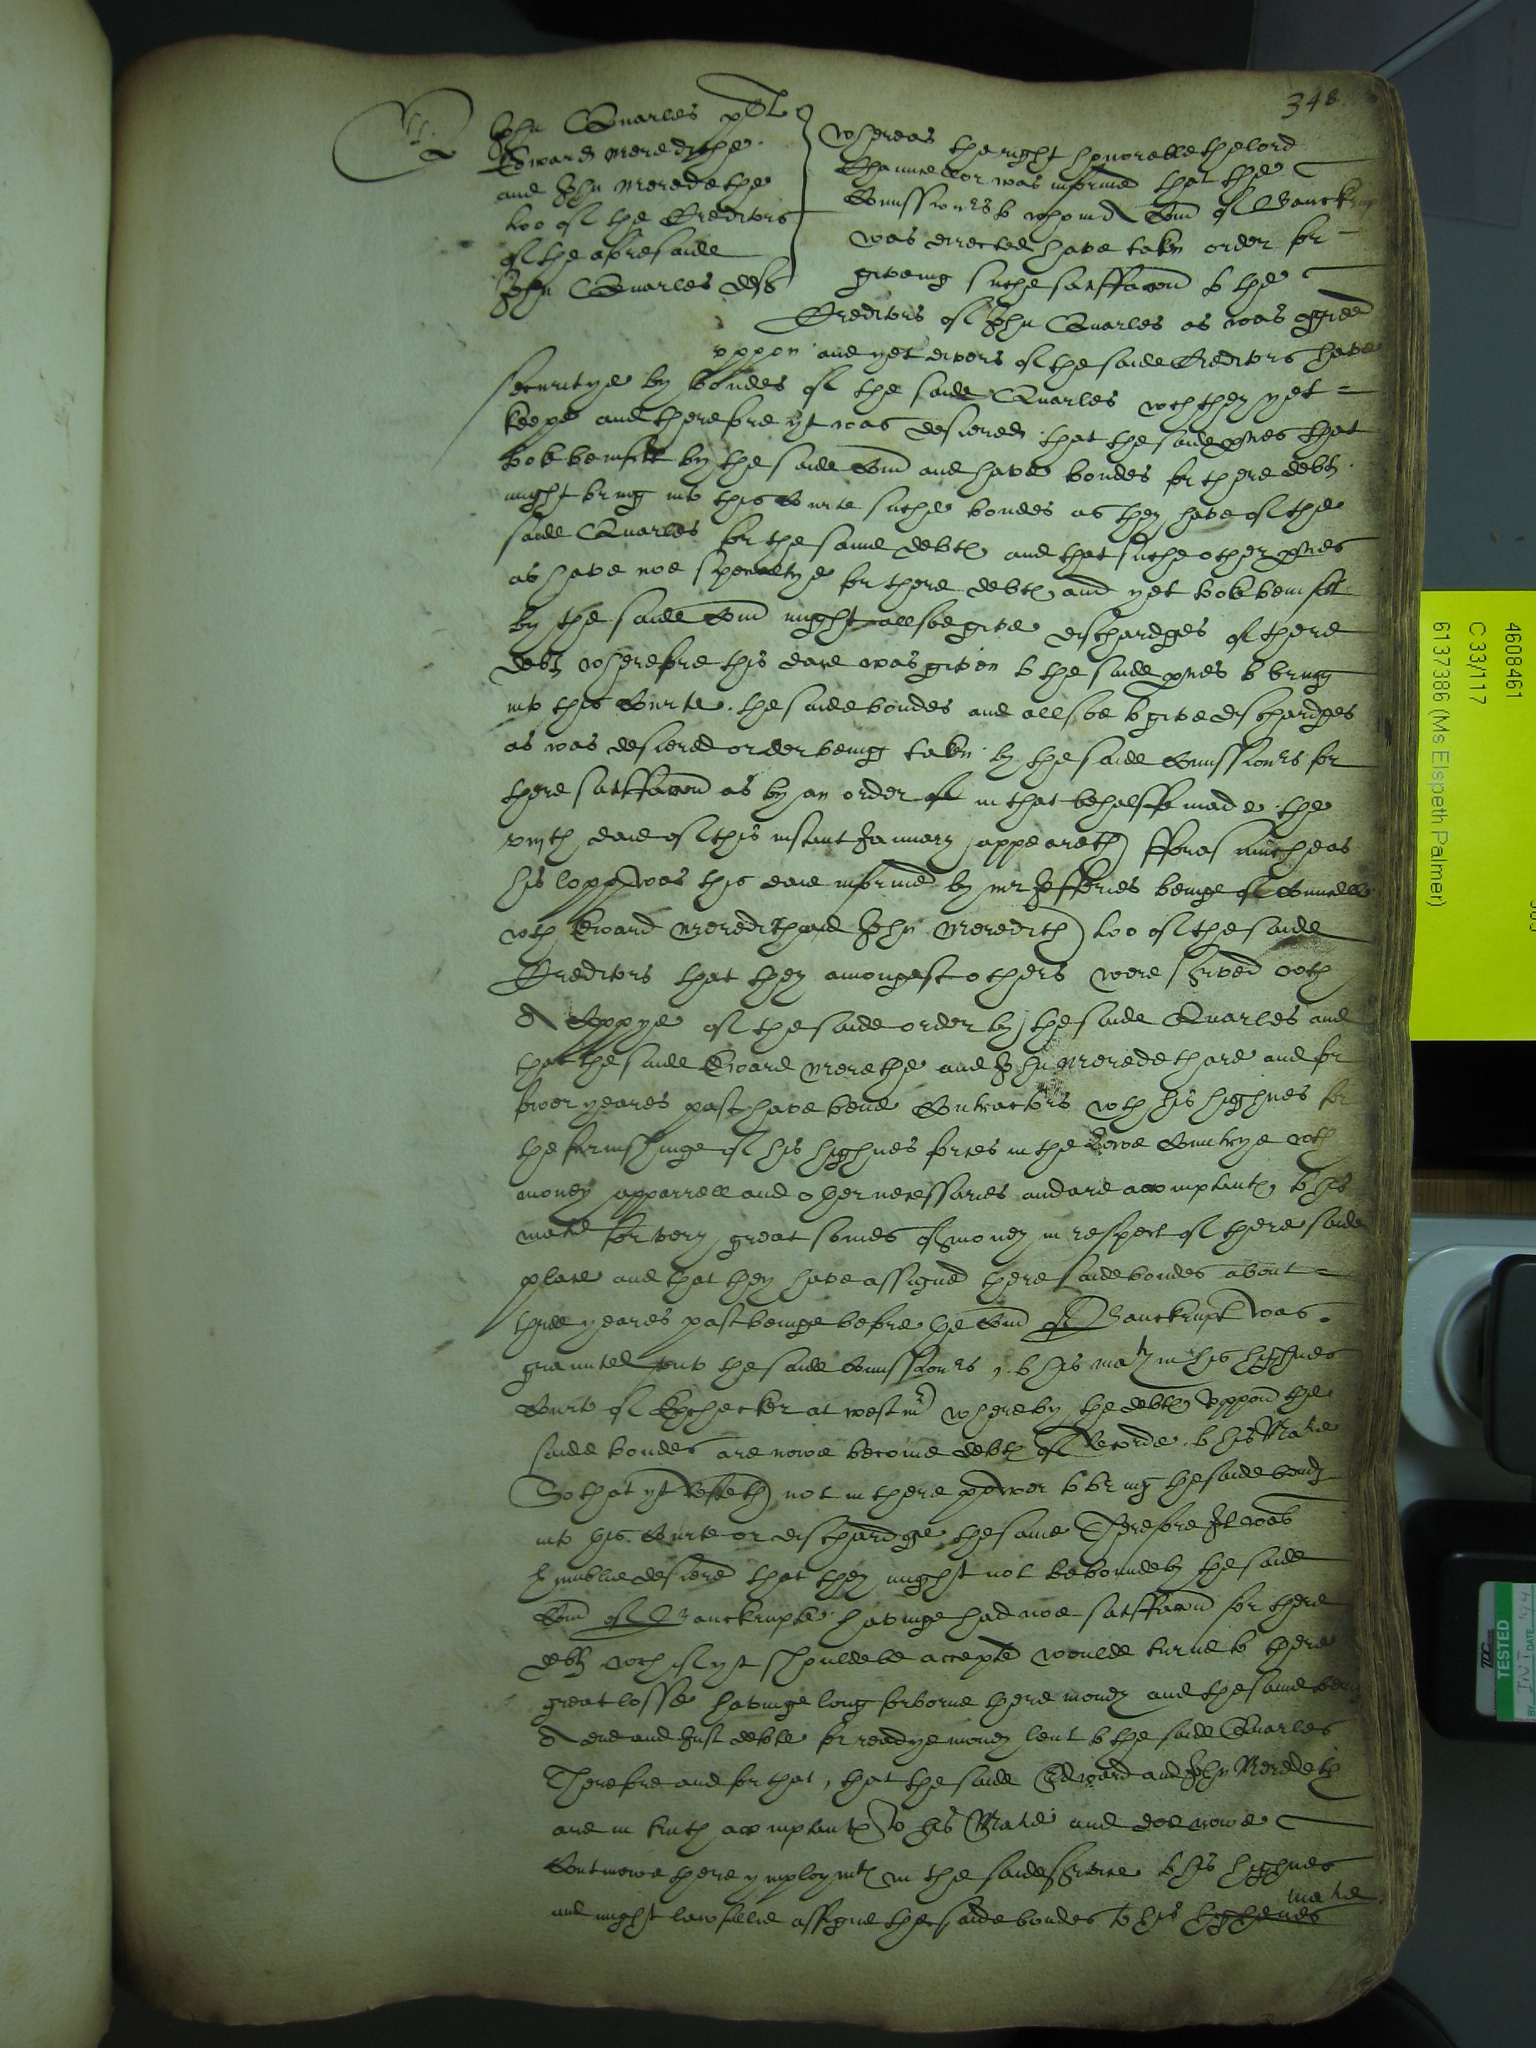 348
John Quarles plt
Edward Meredithe
and John Meredethe
two of the Creditors
of the aforesaide
John Quarles deft
Whereas the right honorable the lord
Chauncellor was informed that the
Comissioners to whom A Com of Banckrupt
was directed have taken order for
giveing suche satisfaccon to the
Creditors of John Quarles as was agreed
uppon and yet divers of the saide Creditors have
securitye by bondes of the saide Quarles wch they yet
keepe and therefore yt was desiered that the saide pties that
tooke benifitt by the saide Com and have bondes for there debts
might bring into this Courte suche bondes as they have of the
saide Quarles for the same debts and that suche other pties
as have noe specialtye for there debts and yet tooke benifitt
by the saide Com might allsoe give dischardges of there
debts Wherefore this daie was given to the saide pties to bring
into this Courte the saide bondes and allsoe to give dischardges
as was desiered order being taken by the saide Comissioners for
there satisfaccon as by an order of in that behalffe made the
viijth daie of this instant January appeareth fforasmucheas
his lopp was this daie informed by mr Jefferies beinge of Councell
wth Edward Meredith and John Meredith two of the saide
Creditors that they amongest others were served wth
A Coppye of the saide order by the saide Quarles and
that the saide Edward Merethe and John Meredeth are and for
fower yeares past have bene Contractors wth his highnes for
the furnishinge of his highnes forces in the lowe Countrye wth
money apparrell and other necessaries and are accomptants to his
matie for very great somes of money in respect of there saide
place and that they have assigned there saide bondes about
three yeares past beinge before the Com of Banckrupt was
graunted unto the saide Comissioners to his maty in his highnes
Courte of Exchecker at westmr whereby the debts uppon the
saide bondes are nowe become debts of Recorde to his Matie
So that yt resteth not in there power to bring the saide bonds
into this Courte or dischardge the same Therefore It was
humblie desiered that they might not be bounde by the saide
Com of Banckrupte havinge had noe satisfaccon for there
debts wch if yt shoulde be accepted woulde turne to there
great losse havinge long forborne there money and the same being
A due and Just debte for readye money lent to the saide Quarles
Therefore and for that, that the saide Edward and John Meredeth
are in truth accomptants to his Matie and doe nowe
Contineue there ymploymt in the saide service to his highnes
and might lawfullie assigne the saide bondes to his highenes matie
4608461
C 33/117
6137386 (Ms Elspeth Palmer)
TESTED